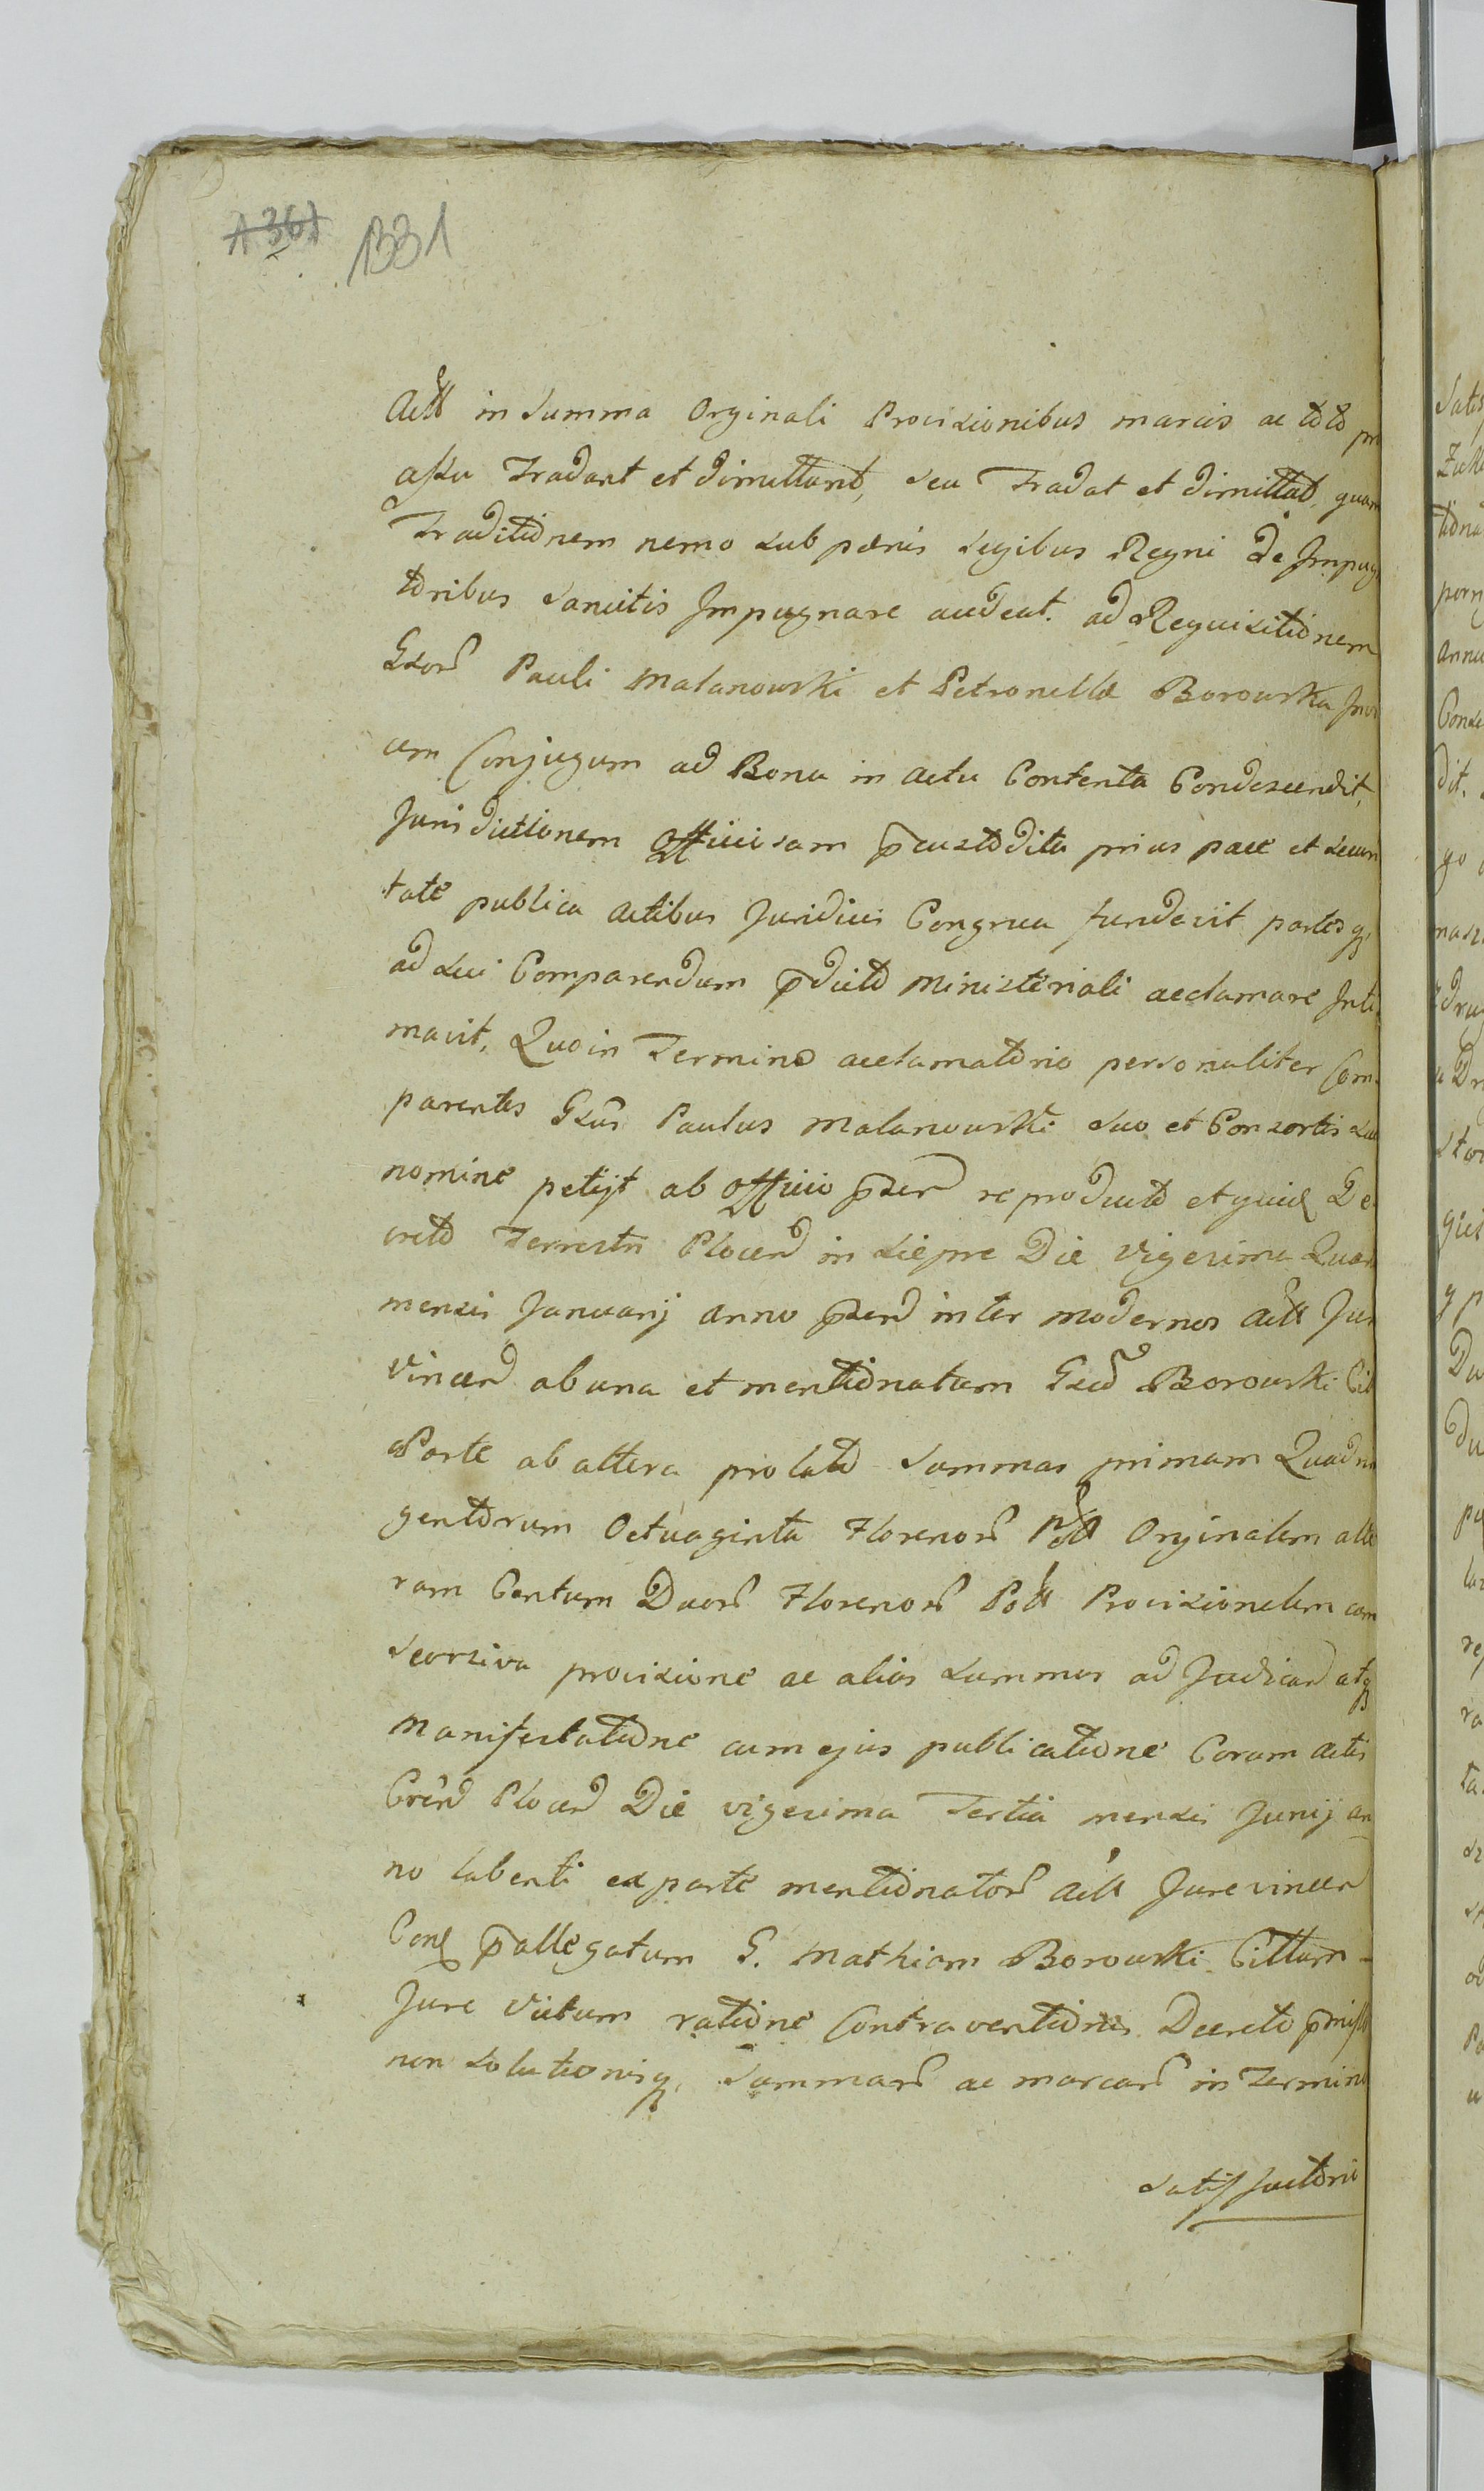 A 361 1331
Actt in Summa Orginali Provisionibus marcis ac toto
assu Tradant et dimittant, seu Tradat et dimittat, quam
Traditionem nemo sub paenis Legibus Regni de Impug
toribus Sancitis Impugnare audeat. ad Requisitionem
Gsor Pauli Malanowski et Petronella Borowska Invi
cem Conjugum ad Bona in actu Contenta Condescendit,
Jurisdictionem officiosam pcustodita prius pace et secur
tate publica actibus Juridicis Congrua fundavit partesq,
ad sui Comparendum pdicto Ministeriali acclamare Inti
mavit, Quo in Termino acclamatorio personaliter Com
parentes Gsus Paulus Malanowski suo et Consortis suae
nomine petijt ab officio psen reproducto et De
creto Terrestri Plocen in Siepre Die Vigesima Quar
mensis Januarij anno psen inter modernos actt Jur
Vincen ab una et mentionatum Gsu Borowski Cit
Parte ab altera prolato Summas primam Quadrin
gentorum Octuaginta Florenor Poll Orginalem alte
ram Centum Duor Florenor Poll Provisionelem cum
seorsiva provisione ac alias summas ad Judican atq
Manifestatione cum ejus publicatione Coram actis
Plocen Die vigesima Tertia mensis Junij an
no labenti ex parte mentionator actt Jure vincen
Conq pallegatum G. Mathiam Borowski Cittum
Jure Victum ratione Contraventionis Decreto pmisso
non solutionisq, Summar ac marcar in Termino
satisfactorio